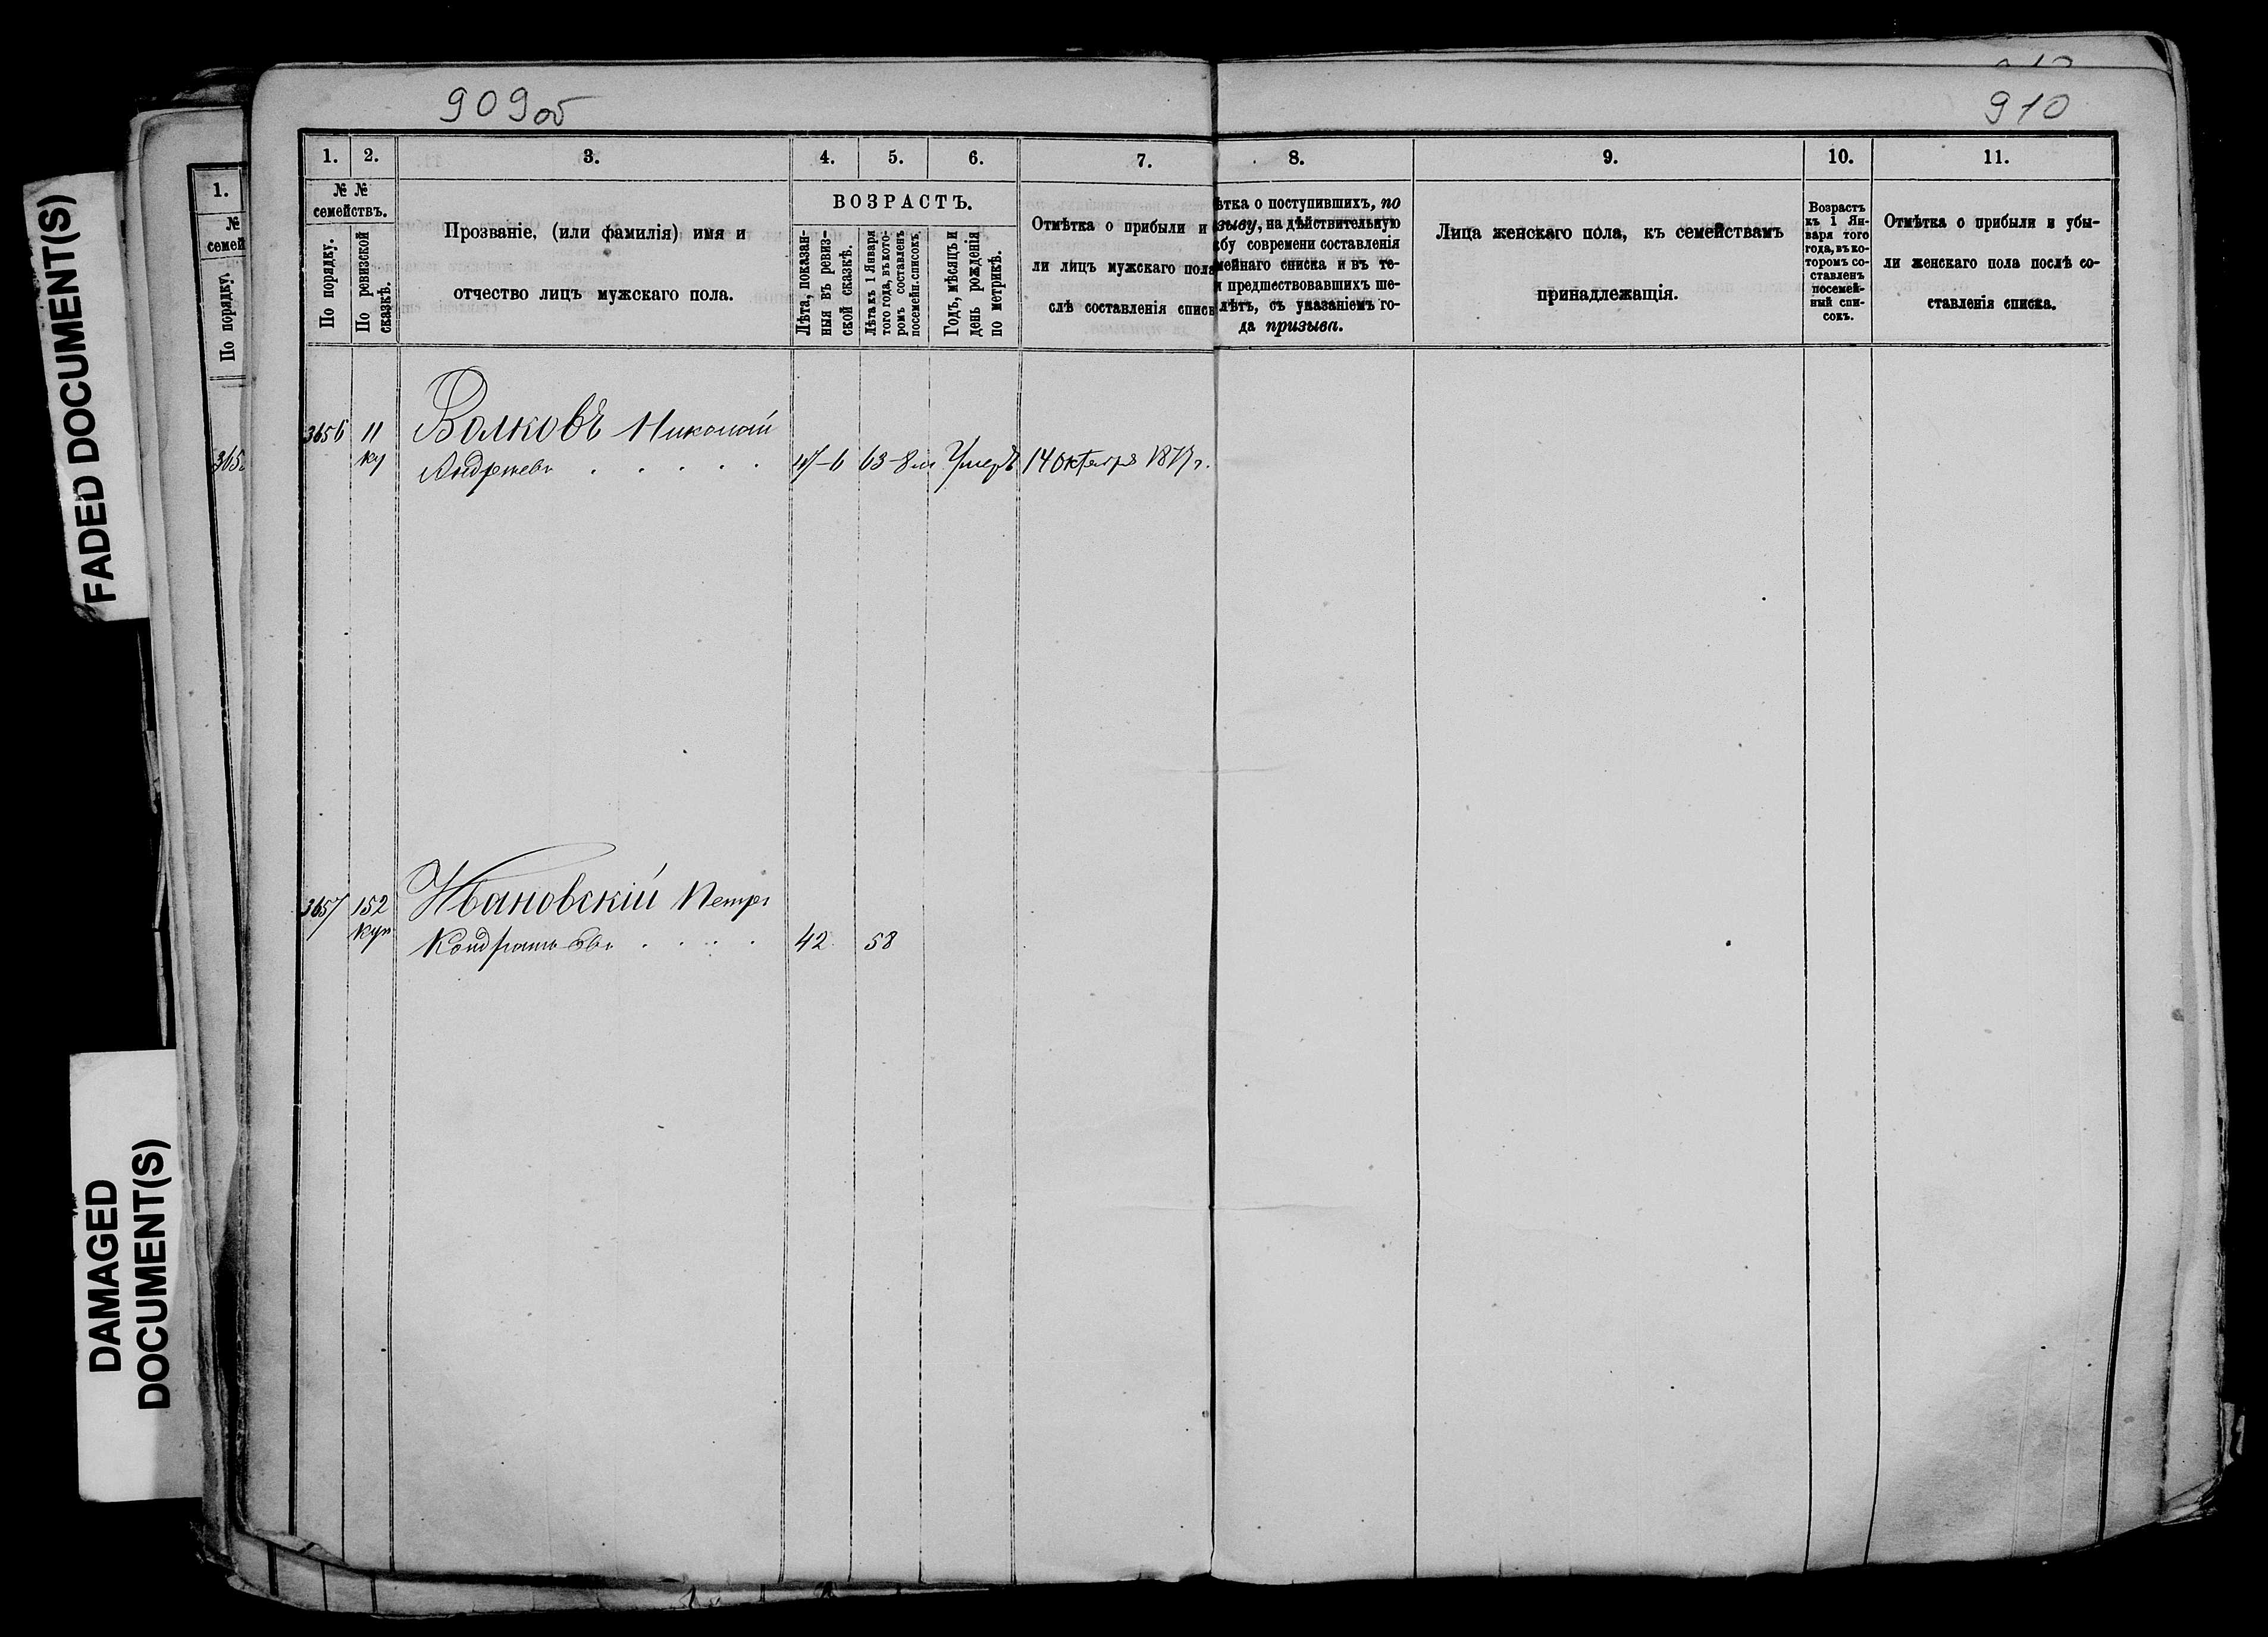 FADED DOCUMENT(S)
DAMAGED
DOCUMENT(S)
1.
№
семей
По порядку.
909об
910
1. 2. 3. 4. 5. 6. 7. 8. 9. 10. 11.
№ №
семействъ.
По порядку.
По ревизской
сказкѣ.
Прозваніе, (или фамилія) имя и
отчество лицъ мужскаго пола.
ВОЗРАСТЪ.
Лѣта, показан-
ныя въ ревиз-
ской сказкѣ.
Лѣта къ 1 Января
того года, въ кото-
ромъ составленъ
посемѣйн. списокъ.
Годъ, мѣсяцъ и
день рожденія
по метрикѣ.
Отмѣтка о прибыли и
ли лицъ мужскаго пола
слѣ составленія списк
ѣтка о поступившихъ, по
зыву, на дѣйствительную
бу современи составленія
мейнаго списка и въ те-
и предшествовавшихъ ше-
лѣтъ, съ указаніемъ го-
да призыва.
Лица женскаго пола, къ семействамъ
принадлежащія.
Возрастъ
къ 1 Ян-
варя того
года, въ ко-
торомъ со-
ставленъ
посемей-
ный спи-
сокъ.
Отмѣтка о прибыли и убы-
ли женскаго пола послѣ со-
ставленія списка.
3656 11 Волковъ Николай
ку Андреевъ 47-6 63-8м Умеръ 14 Октября 1877 г.
3657 152 Ивановскій Петръ
Куп Кондратьевъ 42 58